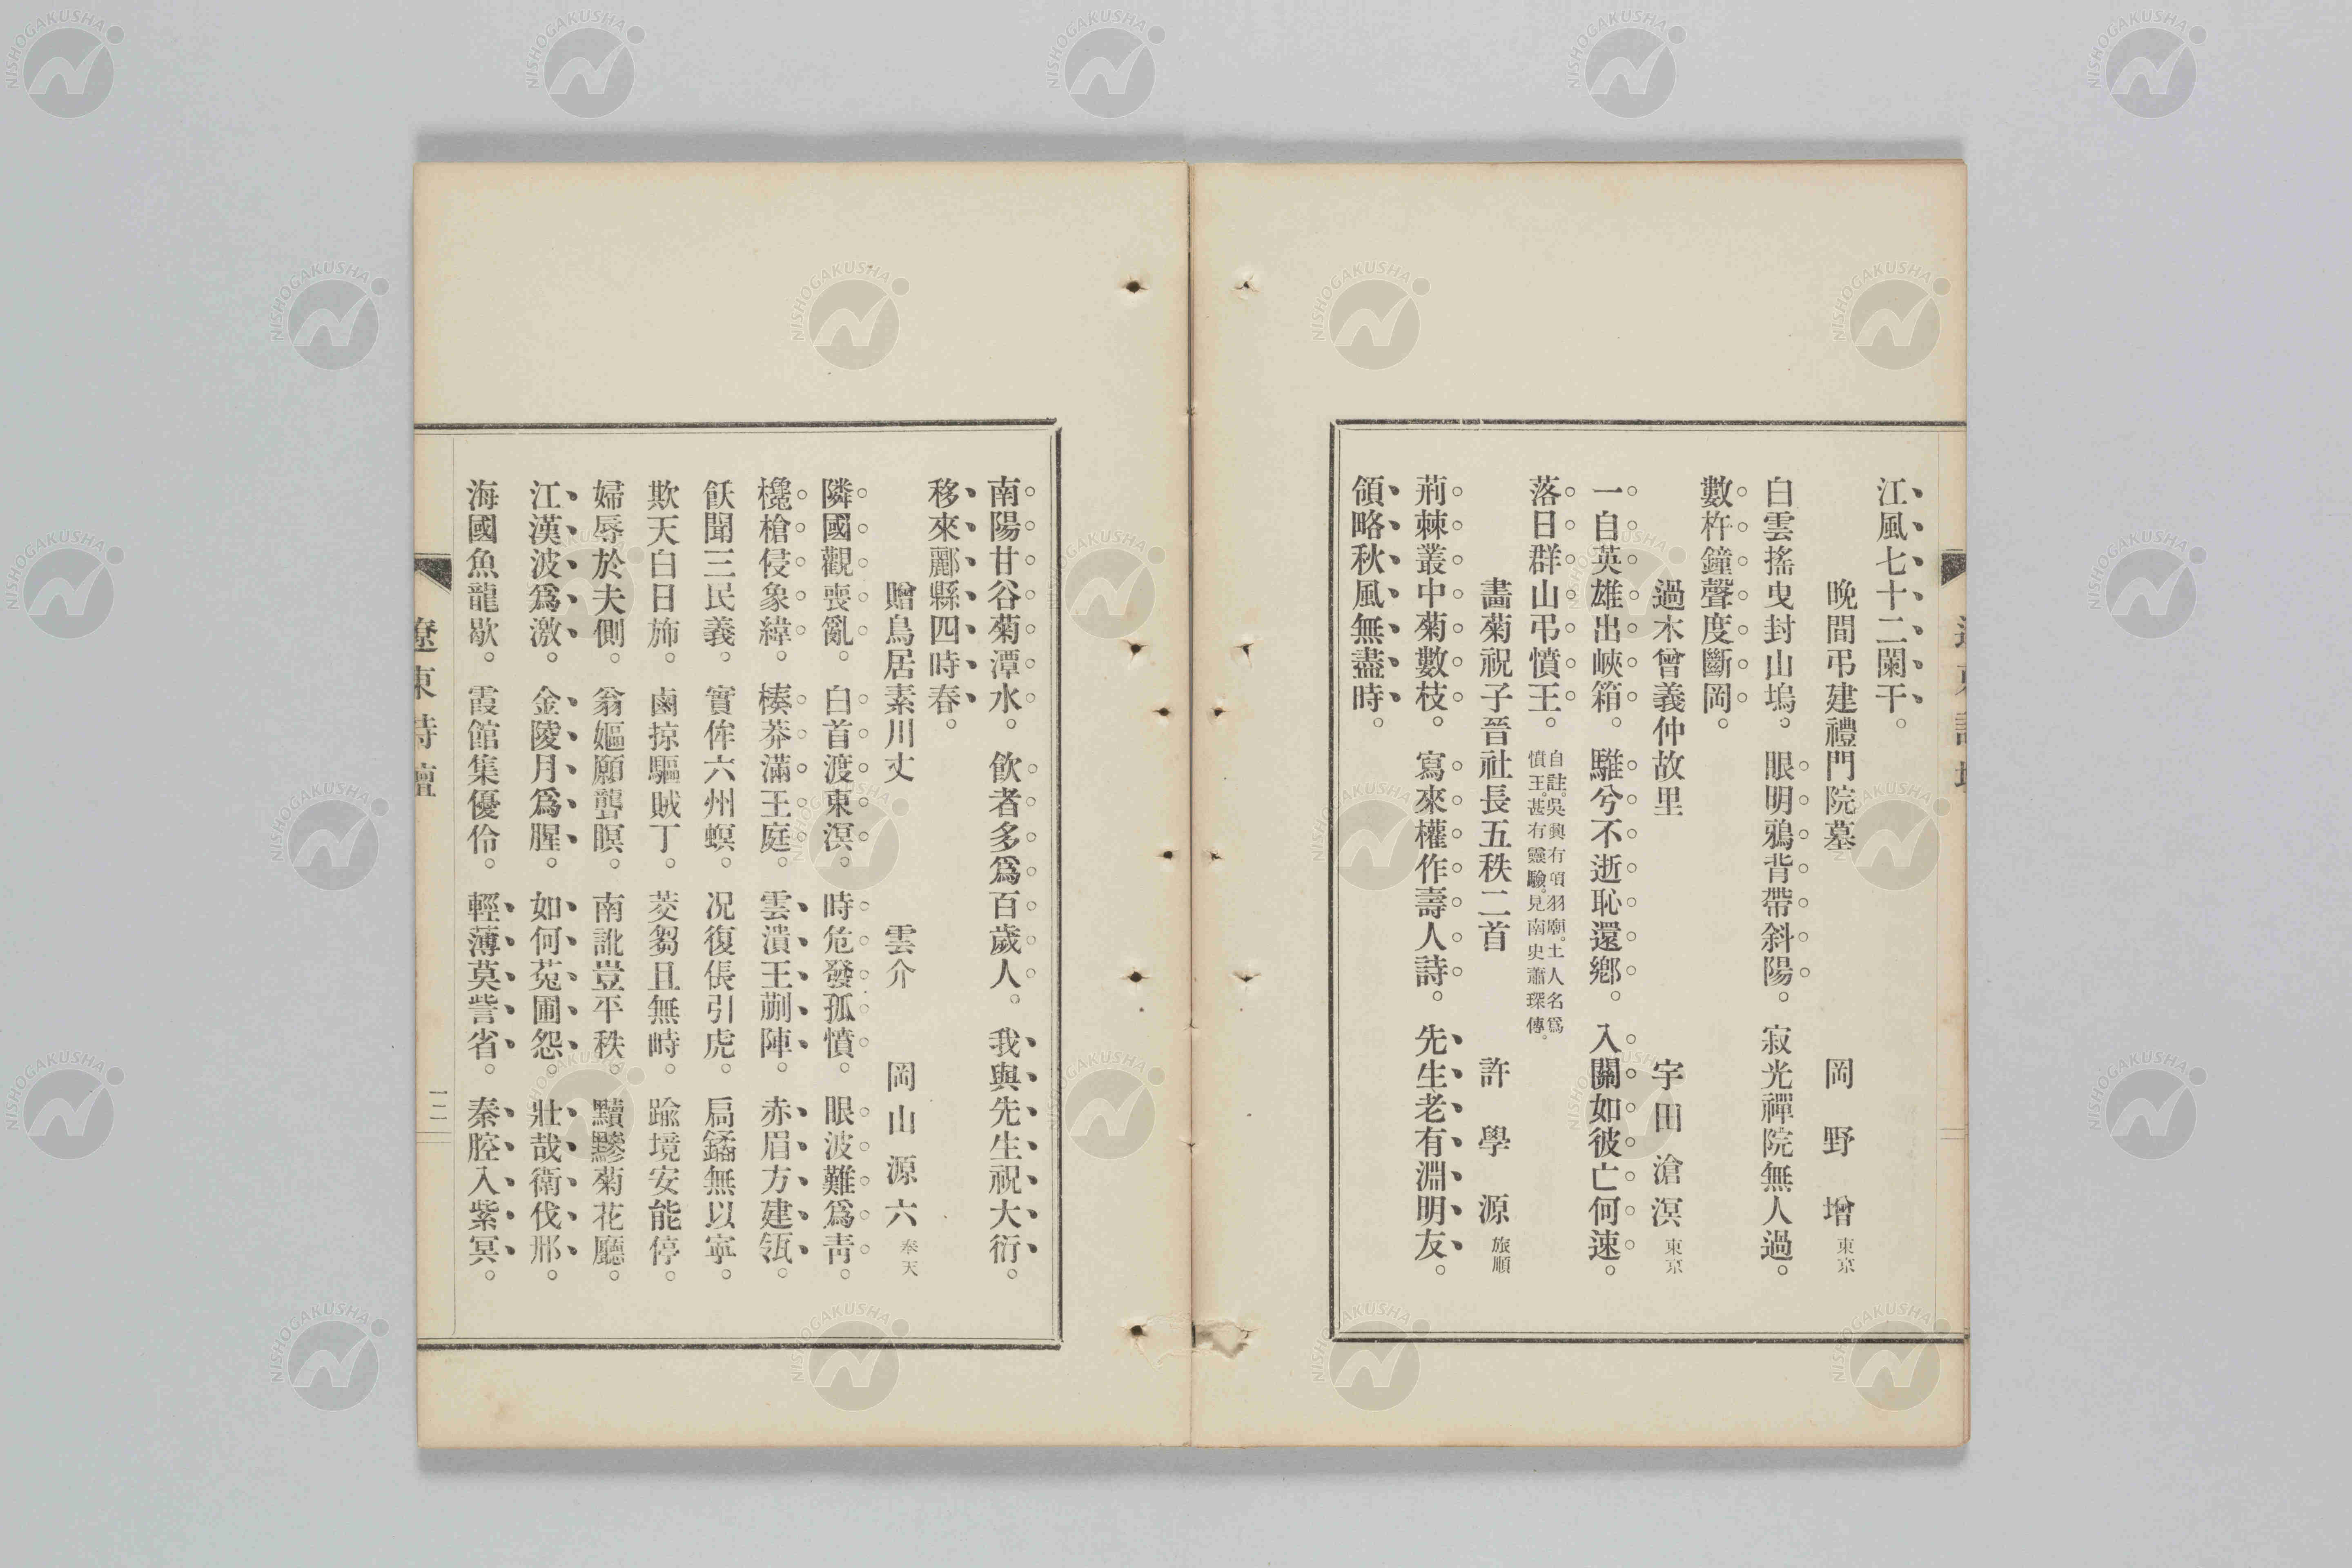 江風七十二闌干。
晚間弔建禮門院墓 岡野增 東京
白雲搖曳封山塢。眼明鴉背帶斜陽。寂光禪院無人過。
數杵鐘聲度斷岡。
過木曾義仲故里 宇田滄溟 東京
一自英雄出峽箱。騅兮不逝恥還鄉。入關如彼亡何速。
落日群山弔憤王。自註。吳興有項羽廟。土人名爲
憤王。甚有靈驗。見南史蕭琛傳。
畵菊祝子晉社長五秩二首 許學源 旅順
荊棘叢中菊數枝。寫來權作壽人詩。先生老有淵明友。
領略秋風無盡時。
南陽甘谷菊潭水。飮者多爲百歲人。我與先生祝大衍。
移來酈縣四時春。
贈鳥居素川丈 雲介 岡山源六 奉天
隣國觀喪亂。白首渡東溟。時危發孤憤。眼波難爲靑。
欃槍侵象緯。榛莽滿王庭。雲潰王蒯陣。赤眉方建瓴。
飫聞三民義。實侔六州螟。况復倀引虎。扃鐍無以寧。
欺天白日旆。鹵掠驅賊丁。茭芻且無峙。踰境安能停。
婦辱於夫側。翁嫗願聾瞑。南訛豈平秩。黷黲菊花廳。
江漢波爲激。金陵月爲腥。如何菟圃怨。壯哉衛伐邢。
海國魚龍歇。霞館集優伶。輕薄莫訾省。秦腔入紫冥。
遼東詩壇
一二